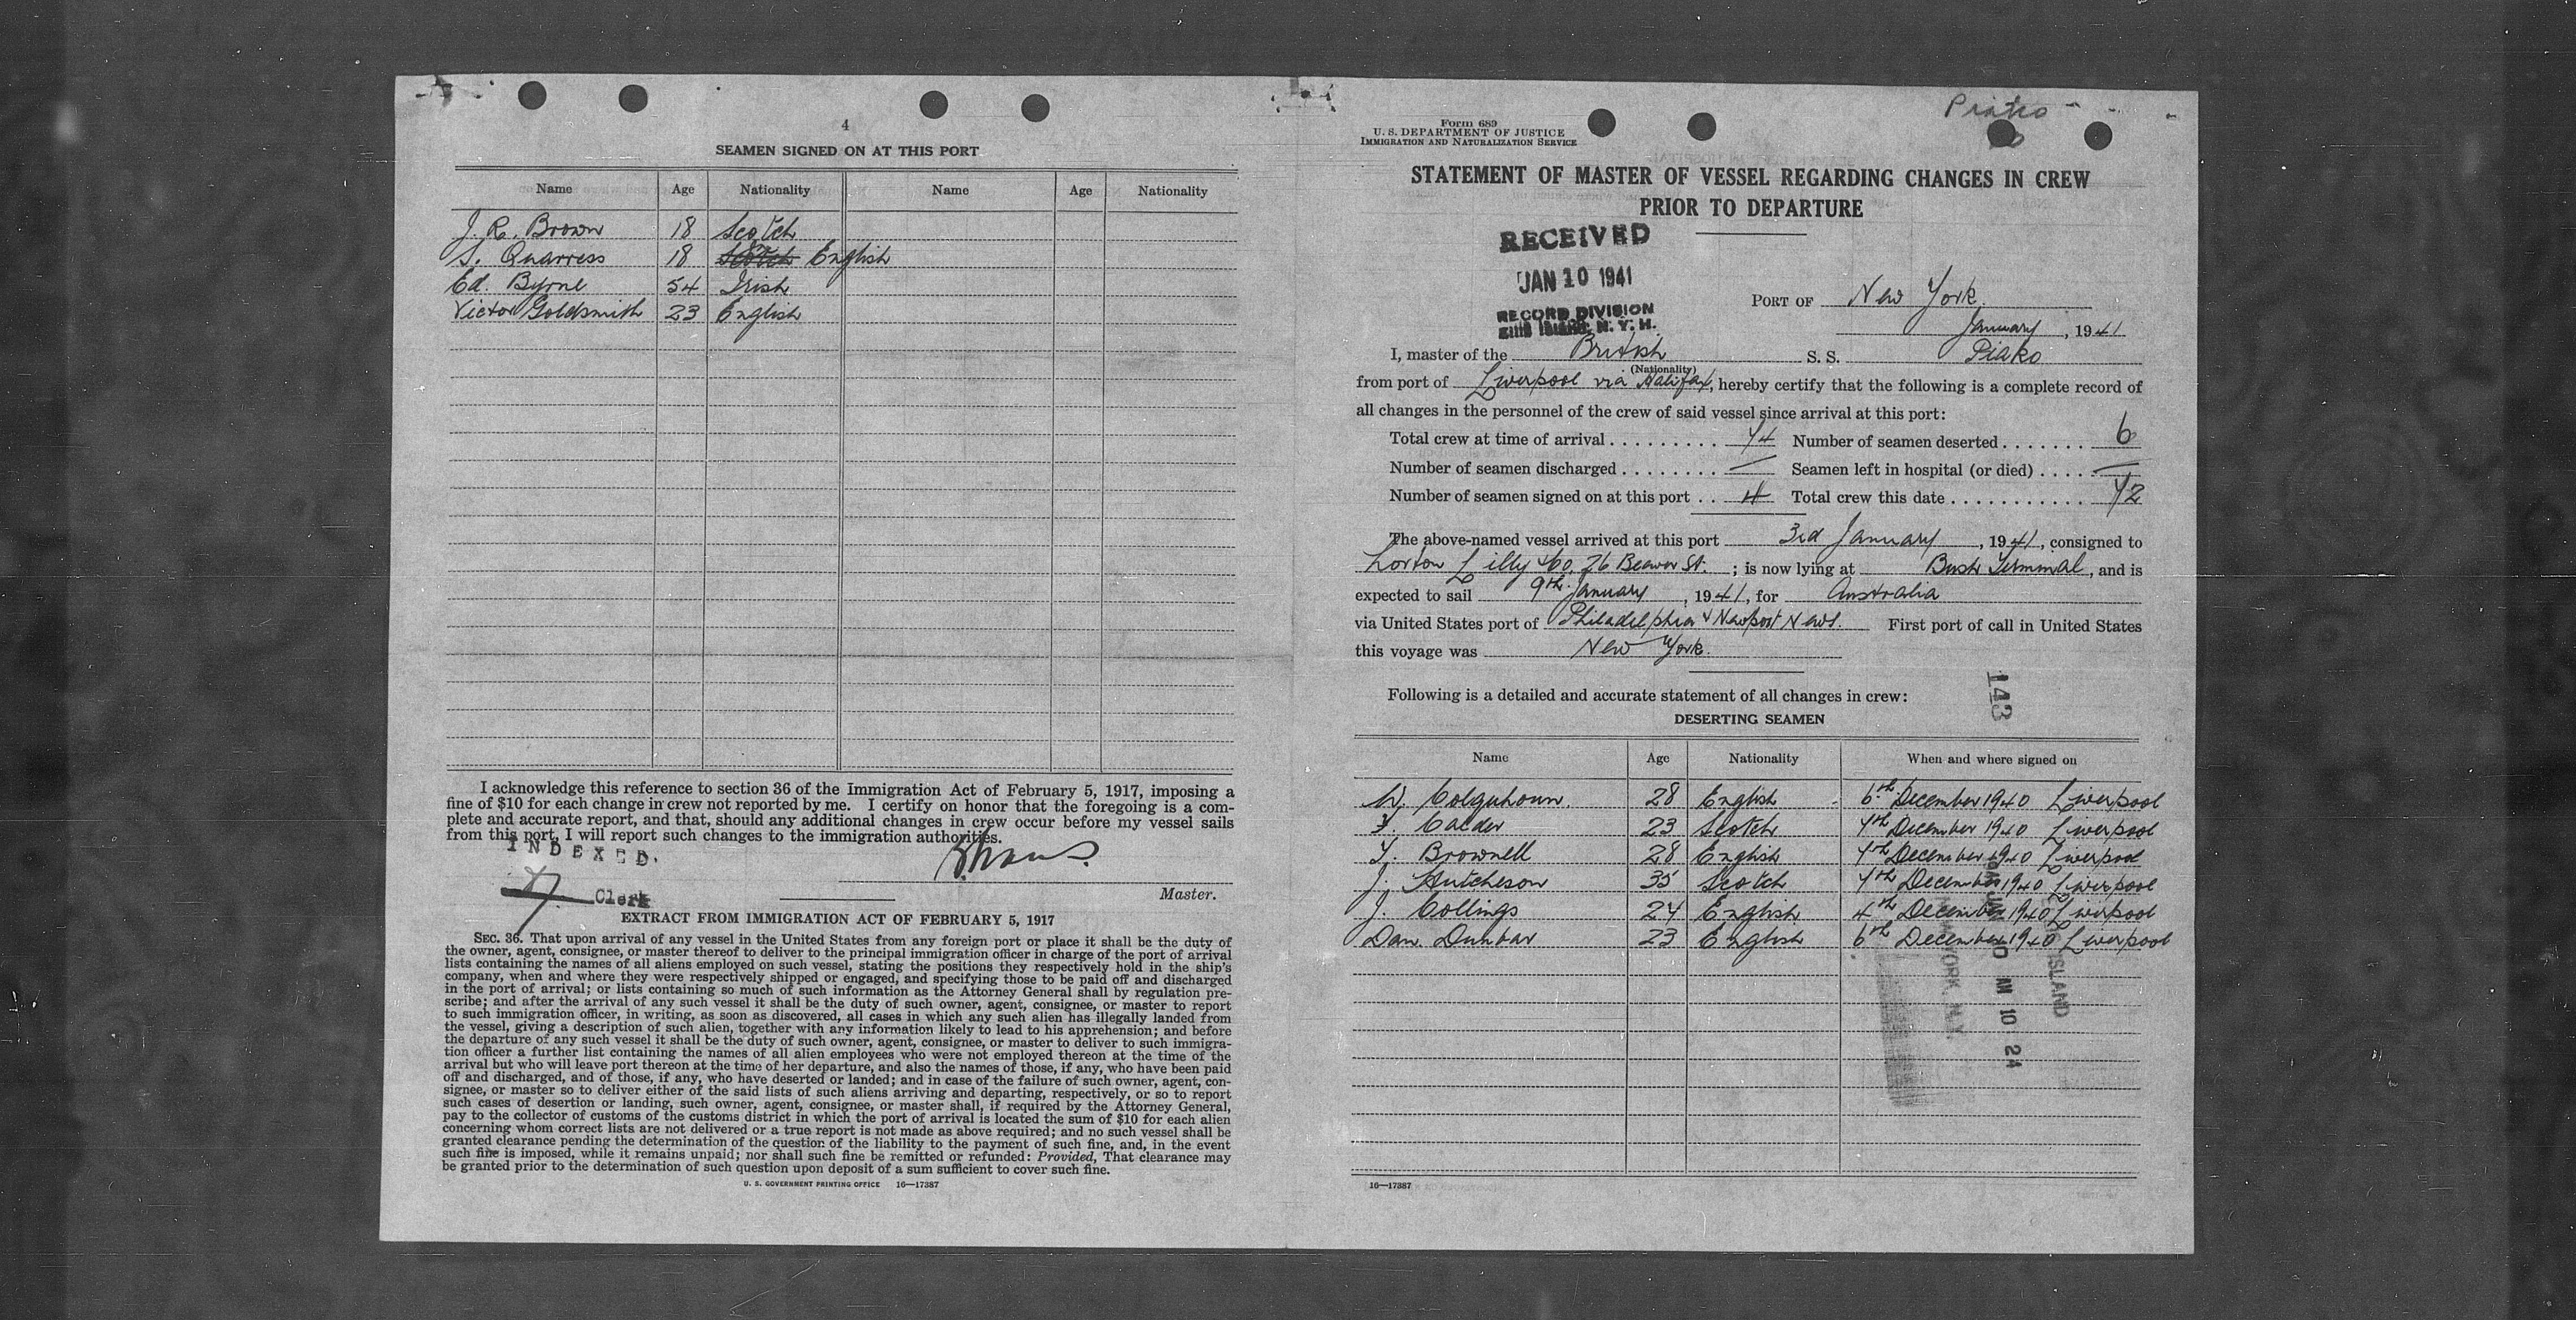 4
SEAMEN SIGNED ON AT THIS PORT
Name Age Nationality Name Age Nationality
J. R. Brown 18 Scotch
S. Quarress 18 Scotch English
Ed. Byrne 54 Irish
Victor Goldsmith 23 English
I acknowledge this reference to section 36 of the Immigration Act of February 5, 1917, imposing a
fine of $10 for each change in crew not reported by me. I certify on honor that the foregoing is a com-
plete and accurate report, and that, should any additional changes in crew occur before my vessel sails
from this port, I will report such changes to the immigration authorities.
INDEXED.
Clerk
Master.
EXTRACT FROM IMMIGRATION ACT OF FEBRUARY 5, 1917
SEC. 36. That upon arrival of any vessel in the United States from any foreign port or place it shall be the duty of
the owner, agent, consignee, or master thereof to deliver to the principal immigration officer in charge of the port of arrival
lists containing the names of all aliens employed on such vessel, stating the positions they respectively hold in the ship's
company, when and where they were respectively shipped or engaged, and specifying those to be paid off and discharged
in the port of arrival; or lists containing so much of such information as the Attorney General shall by regulation pre-
scribe; and after the arrival of any such vessel it shall be the duty of such owner, agent, consignee, or master to report
to such immigration officer, in writing, as soon as discovered, all cases in which any such alien has illegally landed from
the vessel, giving a description of such alien, together with any information likely to lead to his apprehension; and before
the departure of any such vessel it shall be the duty of such owner, agent, consignee, or master to deliver to such immigra-
tion officer a further list containing the names of all alien employees who were not employed thereon at the time of the
arrival but who will leave port thereon at the time of her departure, and also the names of those, if any, who have been paid
off and discharged, and of those, if any, who have deserted or landed; and in case of the failure of such owner, agent, con-
signee, or master so to deliver either of the said lists of such aliens arriving and departing, respectively, or so to report
such cases of desertion or landing, such owner, agent, consignee, or master shall, if required by the Attorney General,
pay to the collector of customs of the customs district in which the port of arrival is located the sum of $10 for each alien
concerning whom correct lists are not delivered or a true report is not made as above required; and no such vessel shall be
granted clearance pending the determination of the question of the liability to the payment of such fine, and, in the event
such fine is imposed, while it remains unpaid; nor shall such fine be remitted or refunded: Provided, That clearance may
be granted prior to the determination of such question upon deposit of a sum sufficient to cover such fine.
U. S. GOVERNMENT PRINTING OFFICE 16—17387
Form 689
U. S. DEPARTMENT OF JUSTICE
IMMIGRATION AND NATURALIZATION SERVICE
STATEMENT OF MASTER OF VESSEL REGARDING CHANGES IN CREW
PRIOR TO DEPARTURE
RECEIVED
JAN 10 1941
RECORD DIVISION
ELLIS ISLAND, N. Y. H.
PORT OF New York
January, 1941
I, master of the British S. S. Piako
(Nationality)
from port of Liverpool via Halifax, hereby certify that the following is a complete record of
all changes in the personnel of the crew of said vessel since arrival at this port:
Total crew at time of arrival . . . . . . . . . 74 Number of seamen deserted . . . . . . . 6
Number of seamen discharged . . . . . . . . — Seamen left in hospital (or died) . . . . —
Number of seamen signed on at this port . . 4 Total crew this date . . . . . . . . . . . . 72
The above-named vessel arrived at this port 3rd January, 1941, consigned to
Norton Lilly & Co, 26 Beaver St. ; is now lying at Bush Terminal, and is
expected to sail 9th January, 1941, for Australia
via United States port of Philadelphia & Newport News. First port of call in United States
this voyage was New York.
143
Following is a detailed and accurate statement of all changes in crew:
DESERTING SEAMEN
Name Age Nationality When and where signed on
W. Colquhoun. 28 English 6th December 1940 Liverpool
Calder 23 Scotch 7th December 1940 Liverpool
T. Brownell 28 English 7th December 1940 Liverpool
J. Hutcheson 35 Scotch 7th December 1940 Liverpool
J. Collings 24 English 4th December 1940 Liverpool
Dan. Dunbar 23 English 6th December 1940 Liverpool
ISLAND
AM 10 24
16—17387